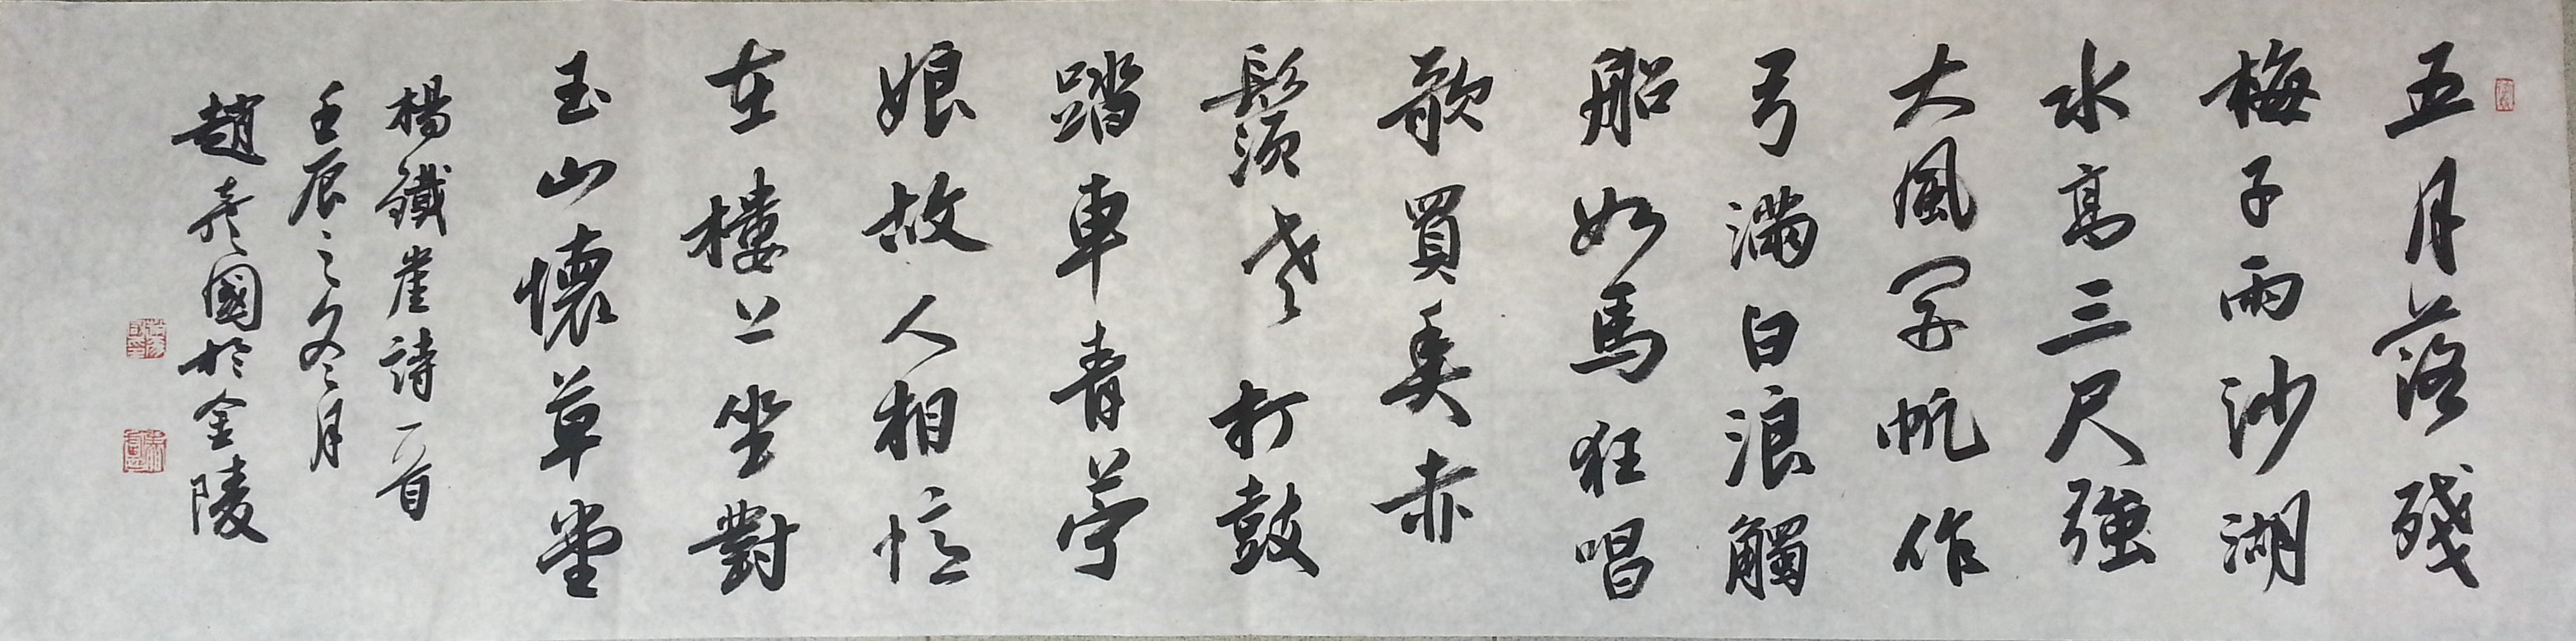 五月落殘
梅子雨沙湖
水高三尺強
大風開帆作
弓滿白浪觸
船如馬狂唱
歌買奚赤
鬚老打鼓
踏車青苧
娘故人相憶
在樓上坐對
玉山懷草堂
楊鐵崖詩一首
壬辰之冬月
趙彥國於金陵